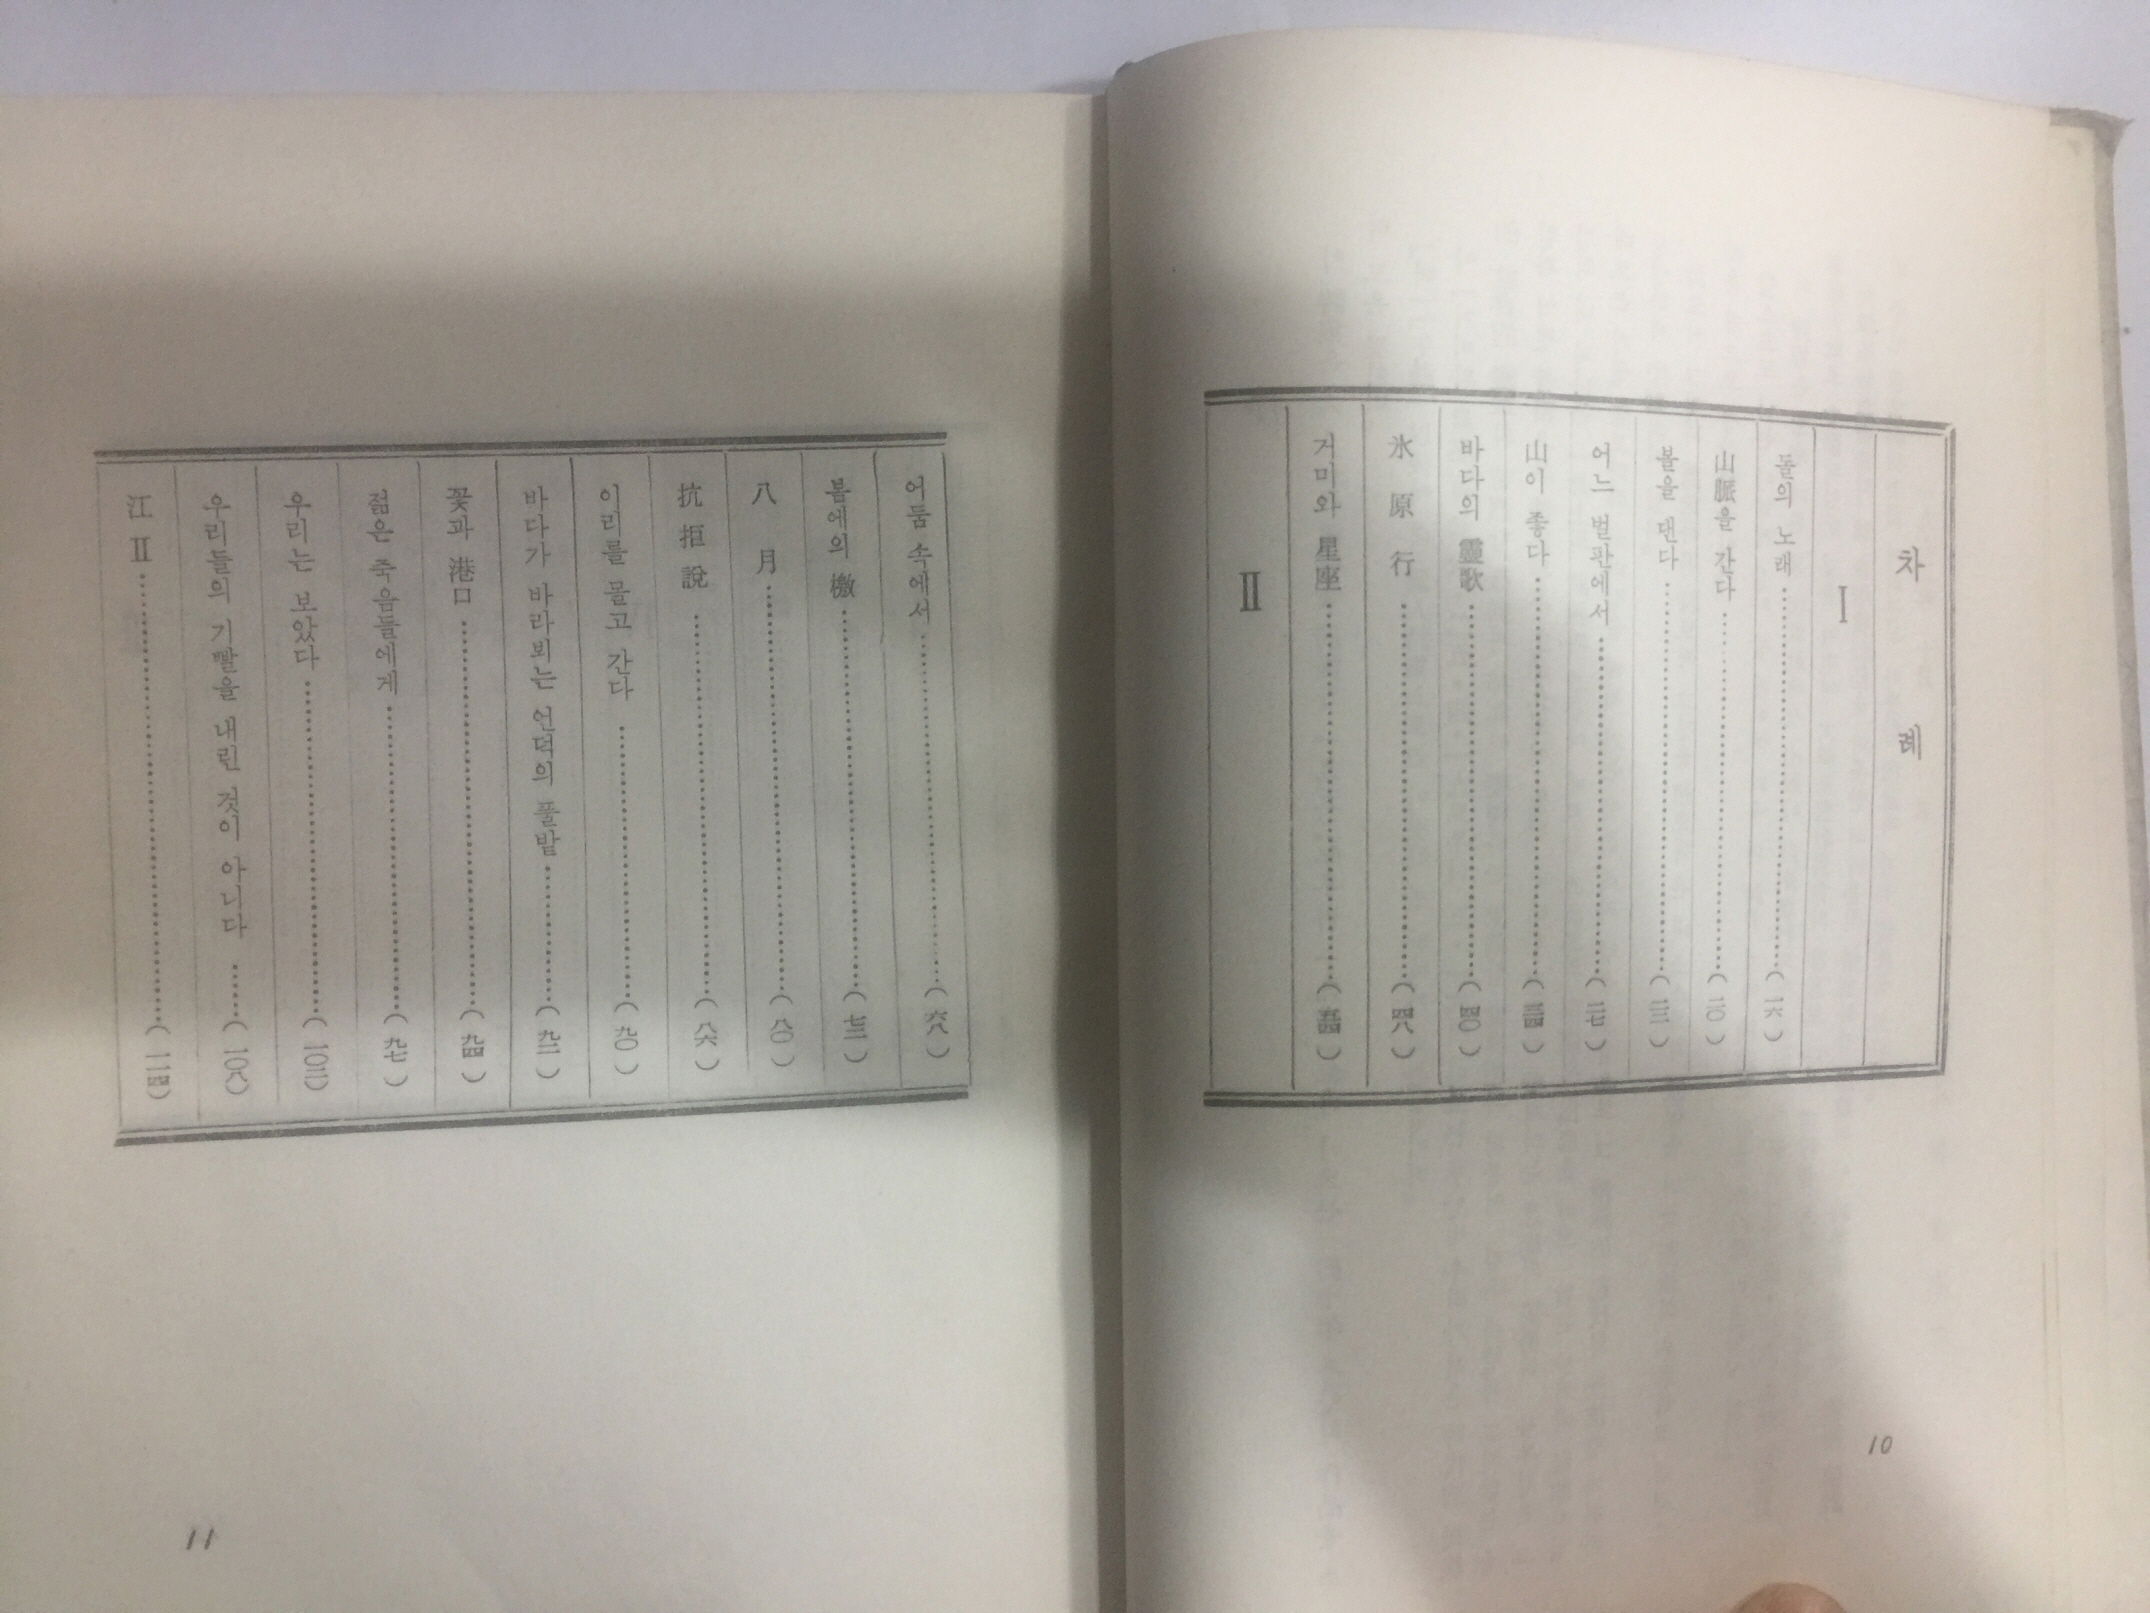 차 례
Ⅰ
돌의 노래……………(一六)
山脈을 간다……………(二〇)
불을 댄다……………(二三)
어느 벌판에서……………(二七)
山이 좋다……………(三四)
바다의 靈歌……………(四〇)
氷 原 行……………(四八)
거미와 星座……………(五四)
Ⅱ
10
어둠 속에서……………(六八)
봄에의 檄……………(七三)
八 月……………(八〇)
抗 拒 說……………(八六)
이리를 몰고 간다……………(九〇)
바다가 바라뵈는 언덕의 풀밭……………(九二)
꽃과 港口……………(九四)
젊은 죽음들에게……………(九七)
우리는 보았다……………(一〇三)
우리들의 기빨을 내린 것이 아니다……(一〇八)
江 Ⅱ……………(一一四)
11